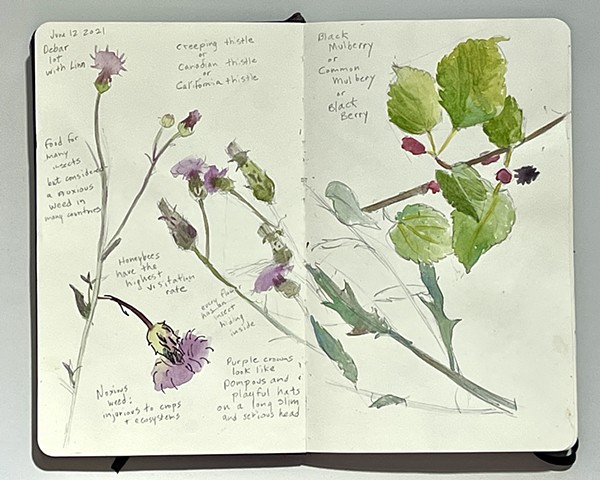 June 12 2021
Debar
lot
with Linn
creeping thistle
or
Canadian thistle
or
California thistle
food for
many
insects
but considered
a noxious
weed in
many countries
Honeybees
have the
highest
visitation
rate
every flower
has an
insect
hiding
inside
Noxious
weed:
injurious to crops
+ ecosystems
Purple crowns
look like
pompous and
playful hats
on a long slim
and serious head
Black
Mulberry
or
Common
Mulbery
or
Black
Berry